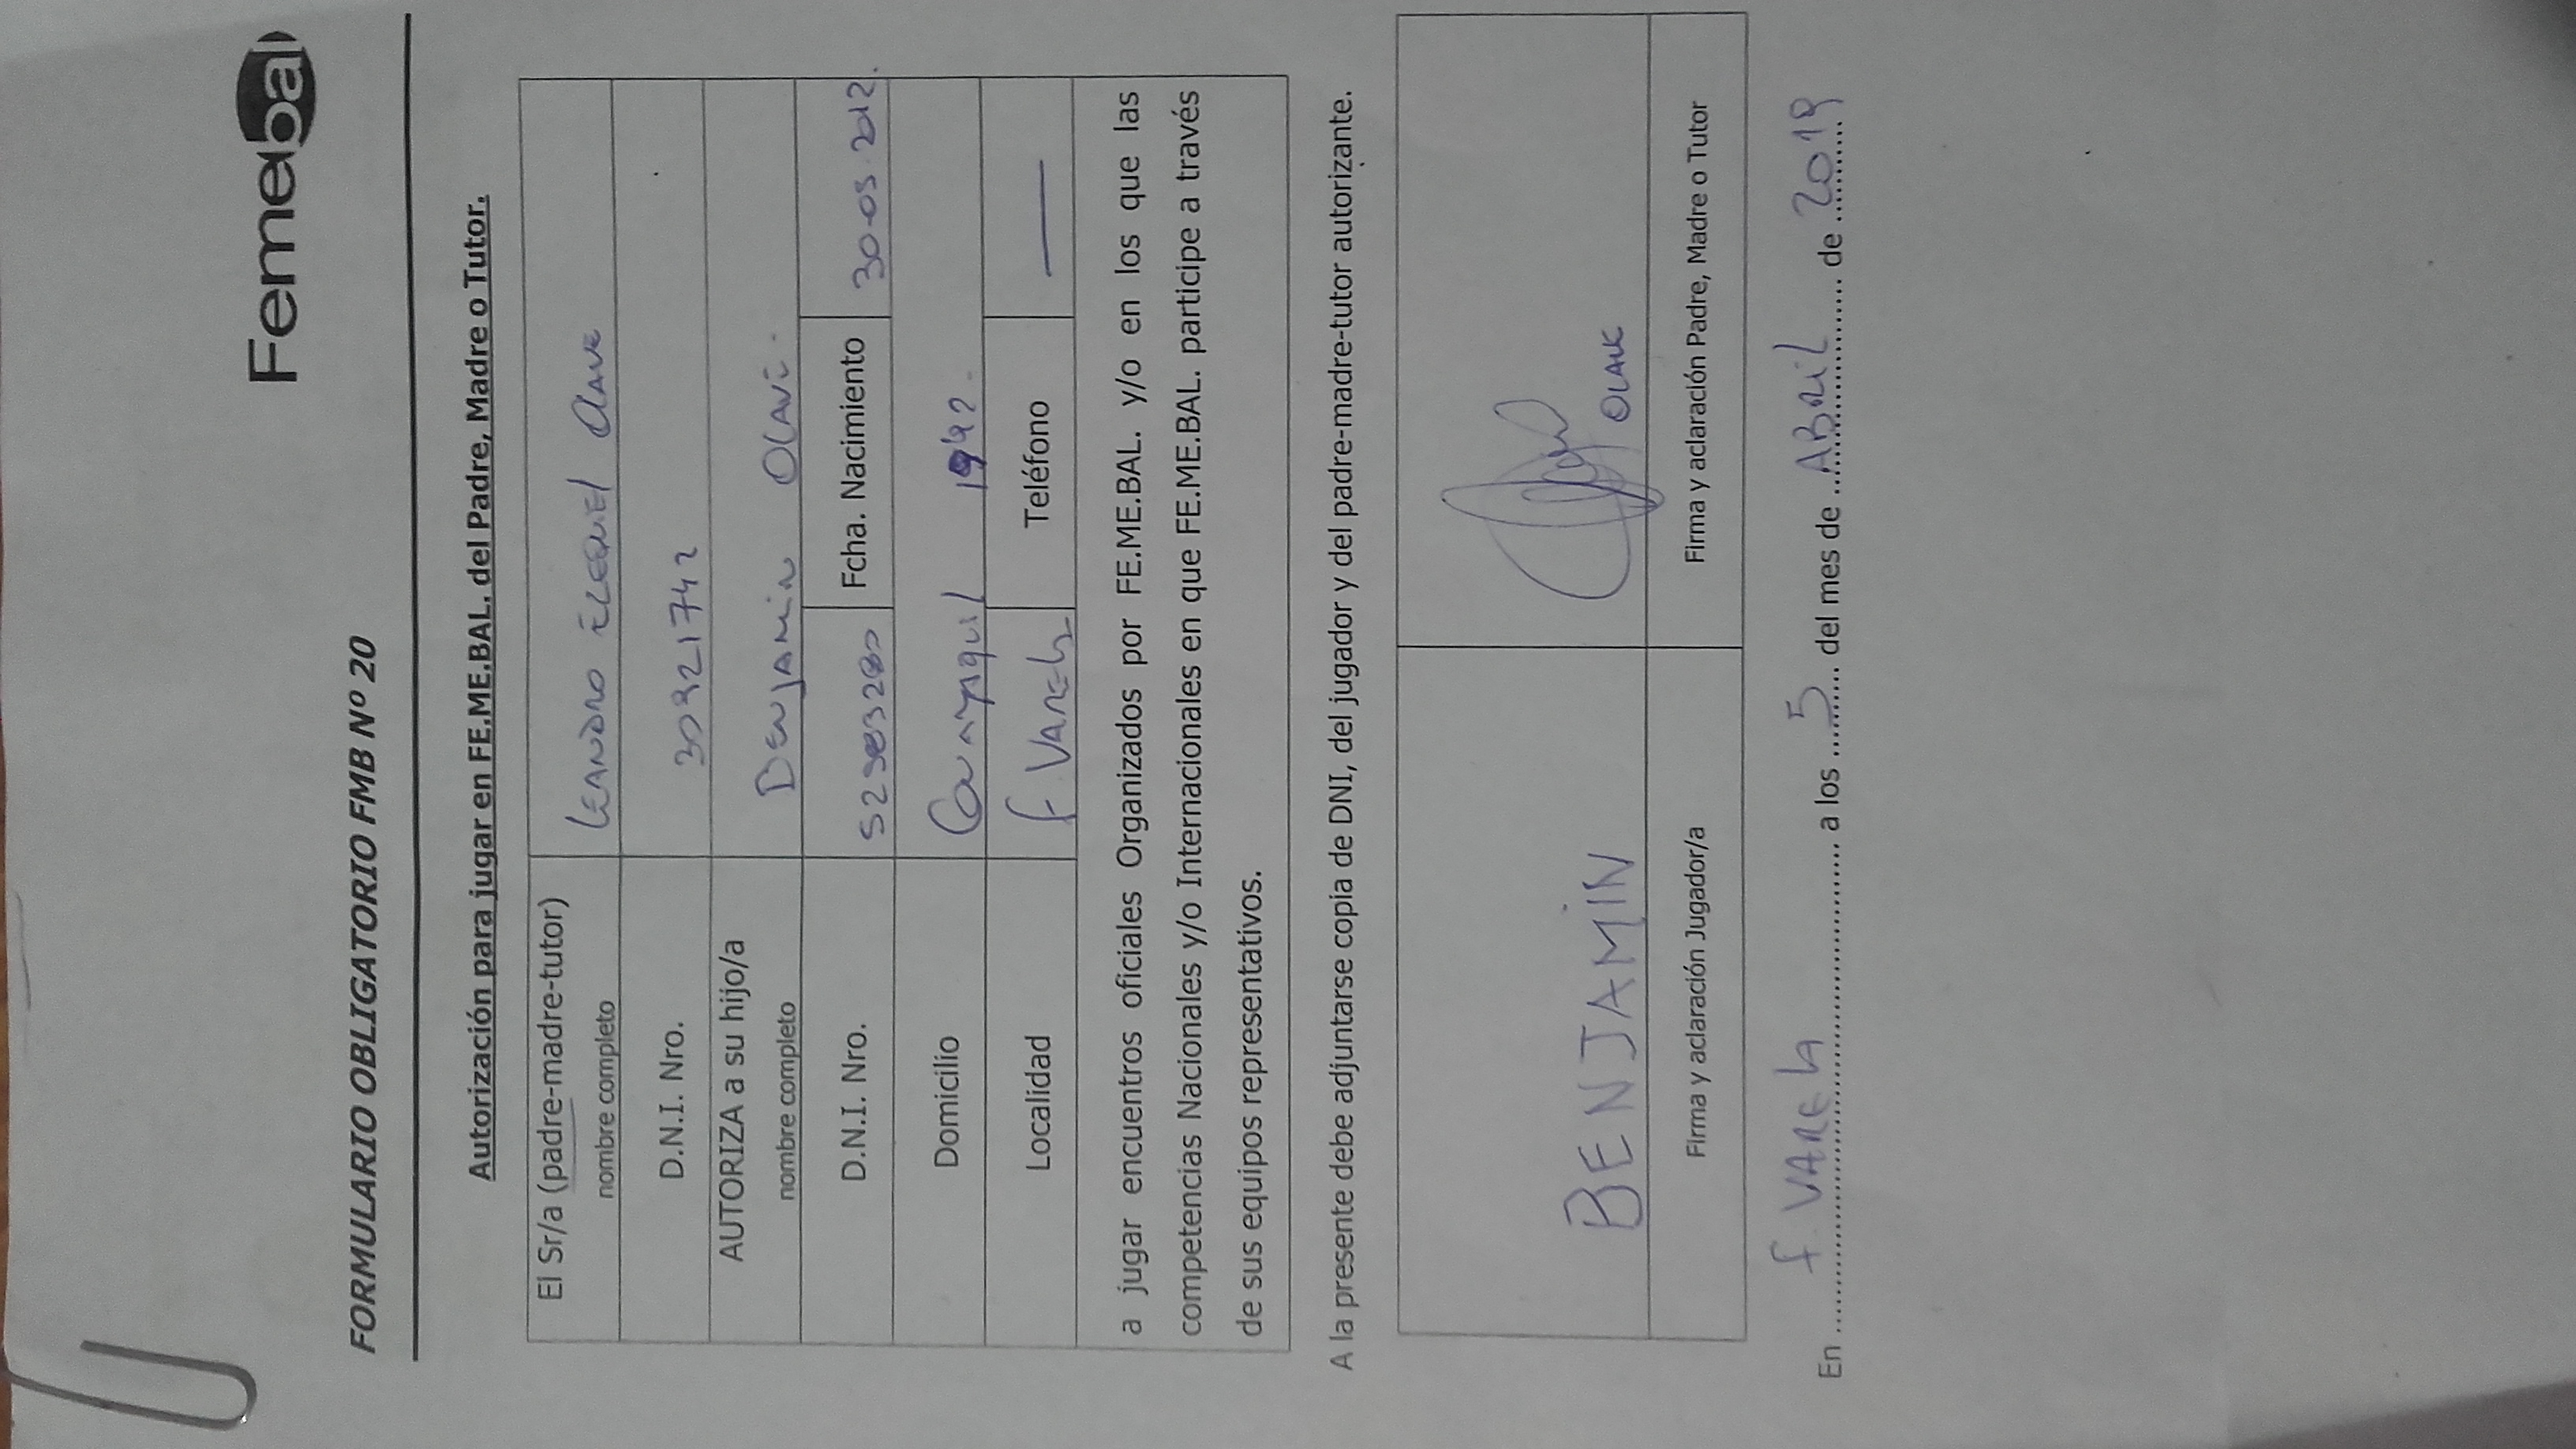 Femebal
FORMULARIO OBLIGATORIO FMB Nº 20
Autorización para jugar en FE.ME.BAL. del Padre, Madre o Tutor.
El Sr/a (padre-madre-tutor) nombre completo LEANDRO EZEQUIEL OLAVE
D.N.I. Nro. 30921742
AUTORIZA a su hijo/a nombre completo BENJAMIN OLAVE
D.N.I. Nro. Fcha. Nacimiento 30-03-2012.
Domicilio 1942
Localidad F. VARELA Teléfono —
a jugar encuentros oficiales Organizados por FE.ME.BAL. y/o en los que las
competencias Nacionales y/o Internacionales en que FE.ME.BAL. participe a través
de sus equipos representativos.
A la presente debe adjuntarse copia de DNI, del jugador y del padre-madre-tutor autorizante.
BENJAMIN OLAVE
Firma y aclaración Jugador/a Firma y aclaración Padre, Madre o Tutor
En F. VARELA a los 5 del mes de ABRIL de 2019